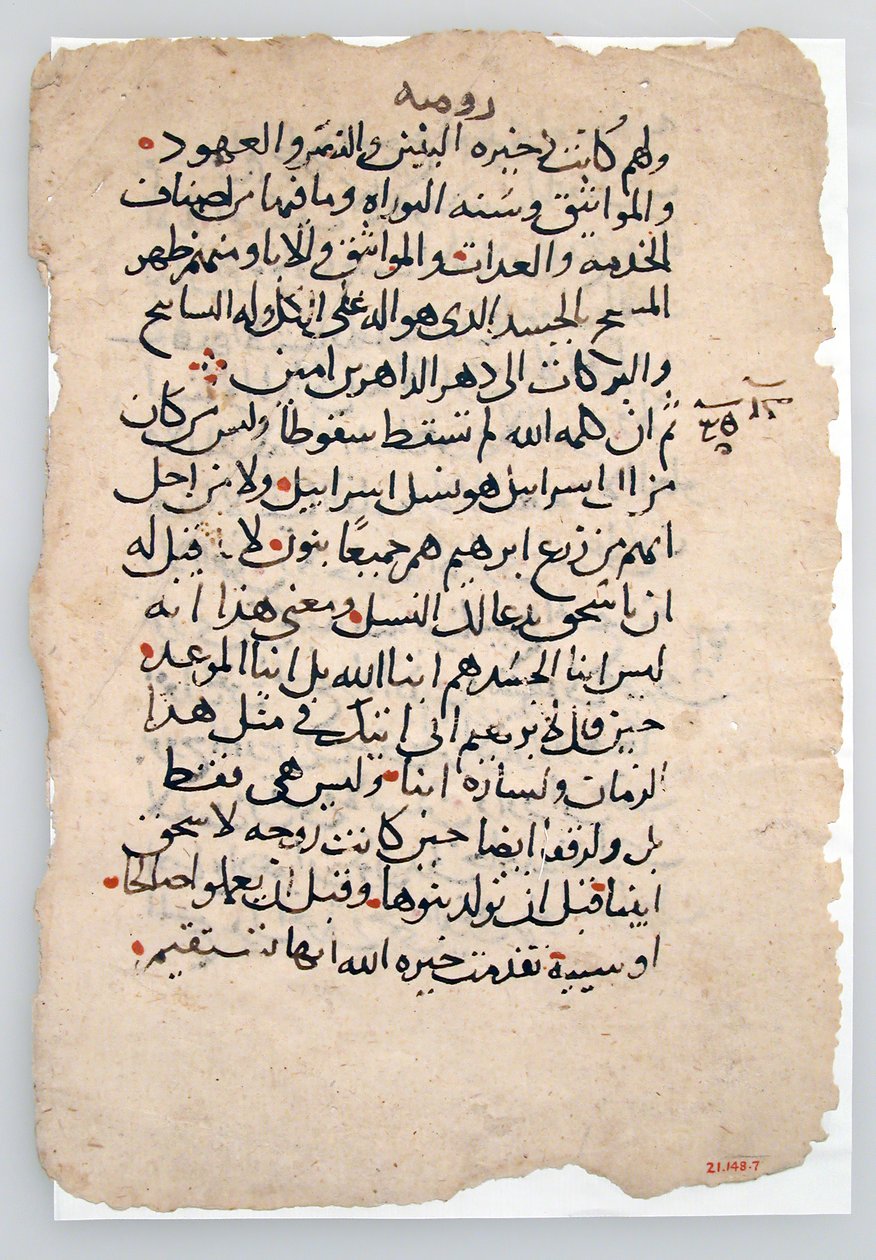 روميه
ولهم كانت خيره البنين والتدبير والعهود
والمواثيق وسنه التوراه وما فيها من اصناف
الخدمة والعدات والمواثيق والابا ومنهم ظهر
المسيح بالجسد الدى هو اله على ذلك له التسابيح
والبركات الى دهر الداهرين امين
ثم ان كلمه الله لم تسقط سقوطاً وليس من كان
من ال اسراييل هو نسل اسراييل ولا من اجل
انهم من زرع ابرهيم هم جميعًا بنون لا قيل له
ان باسحق يدعا لك النسل ومعنى هذا انه
ليس ابنا الجسد هم ابنا الله بل ابنا الموعد
حين قال لابرهيم انى اتيك في مثل هدا
الزمان ولساره ابنا وليس هى فقط
بل ولرفقا ايضا حين كانت زوجه لاسحق
ابينا قبل ان تولد بنوها وقبل ان يعملوا صالحًا
او سيية تقدمت خيره الله انها تستقيم
21.148.7